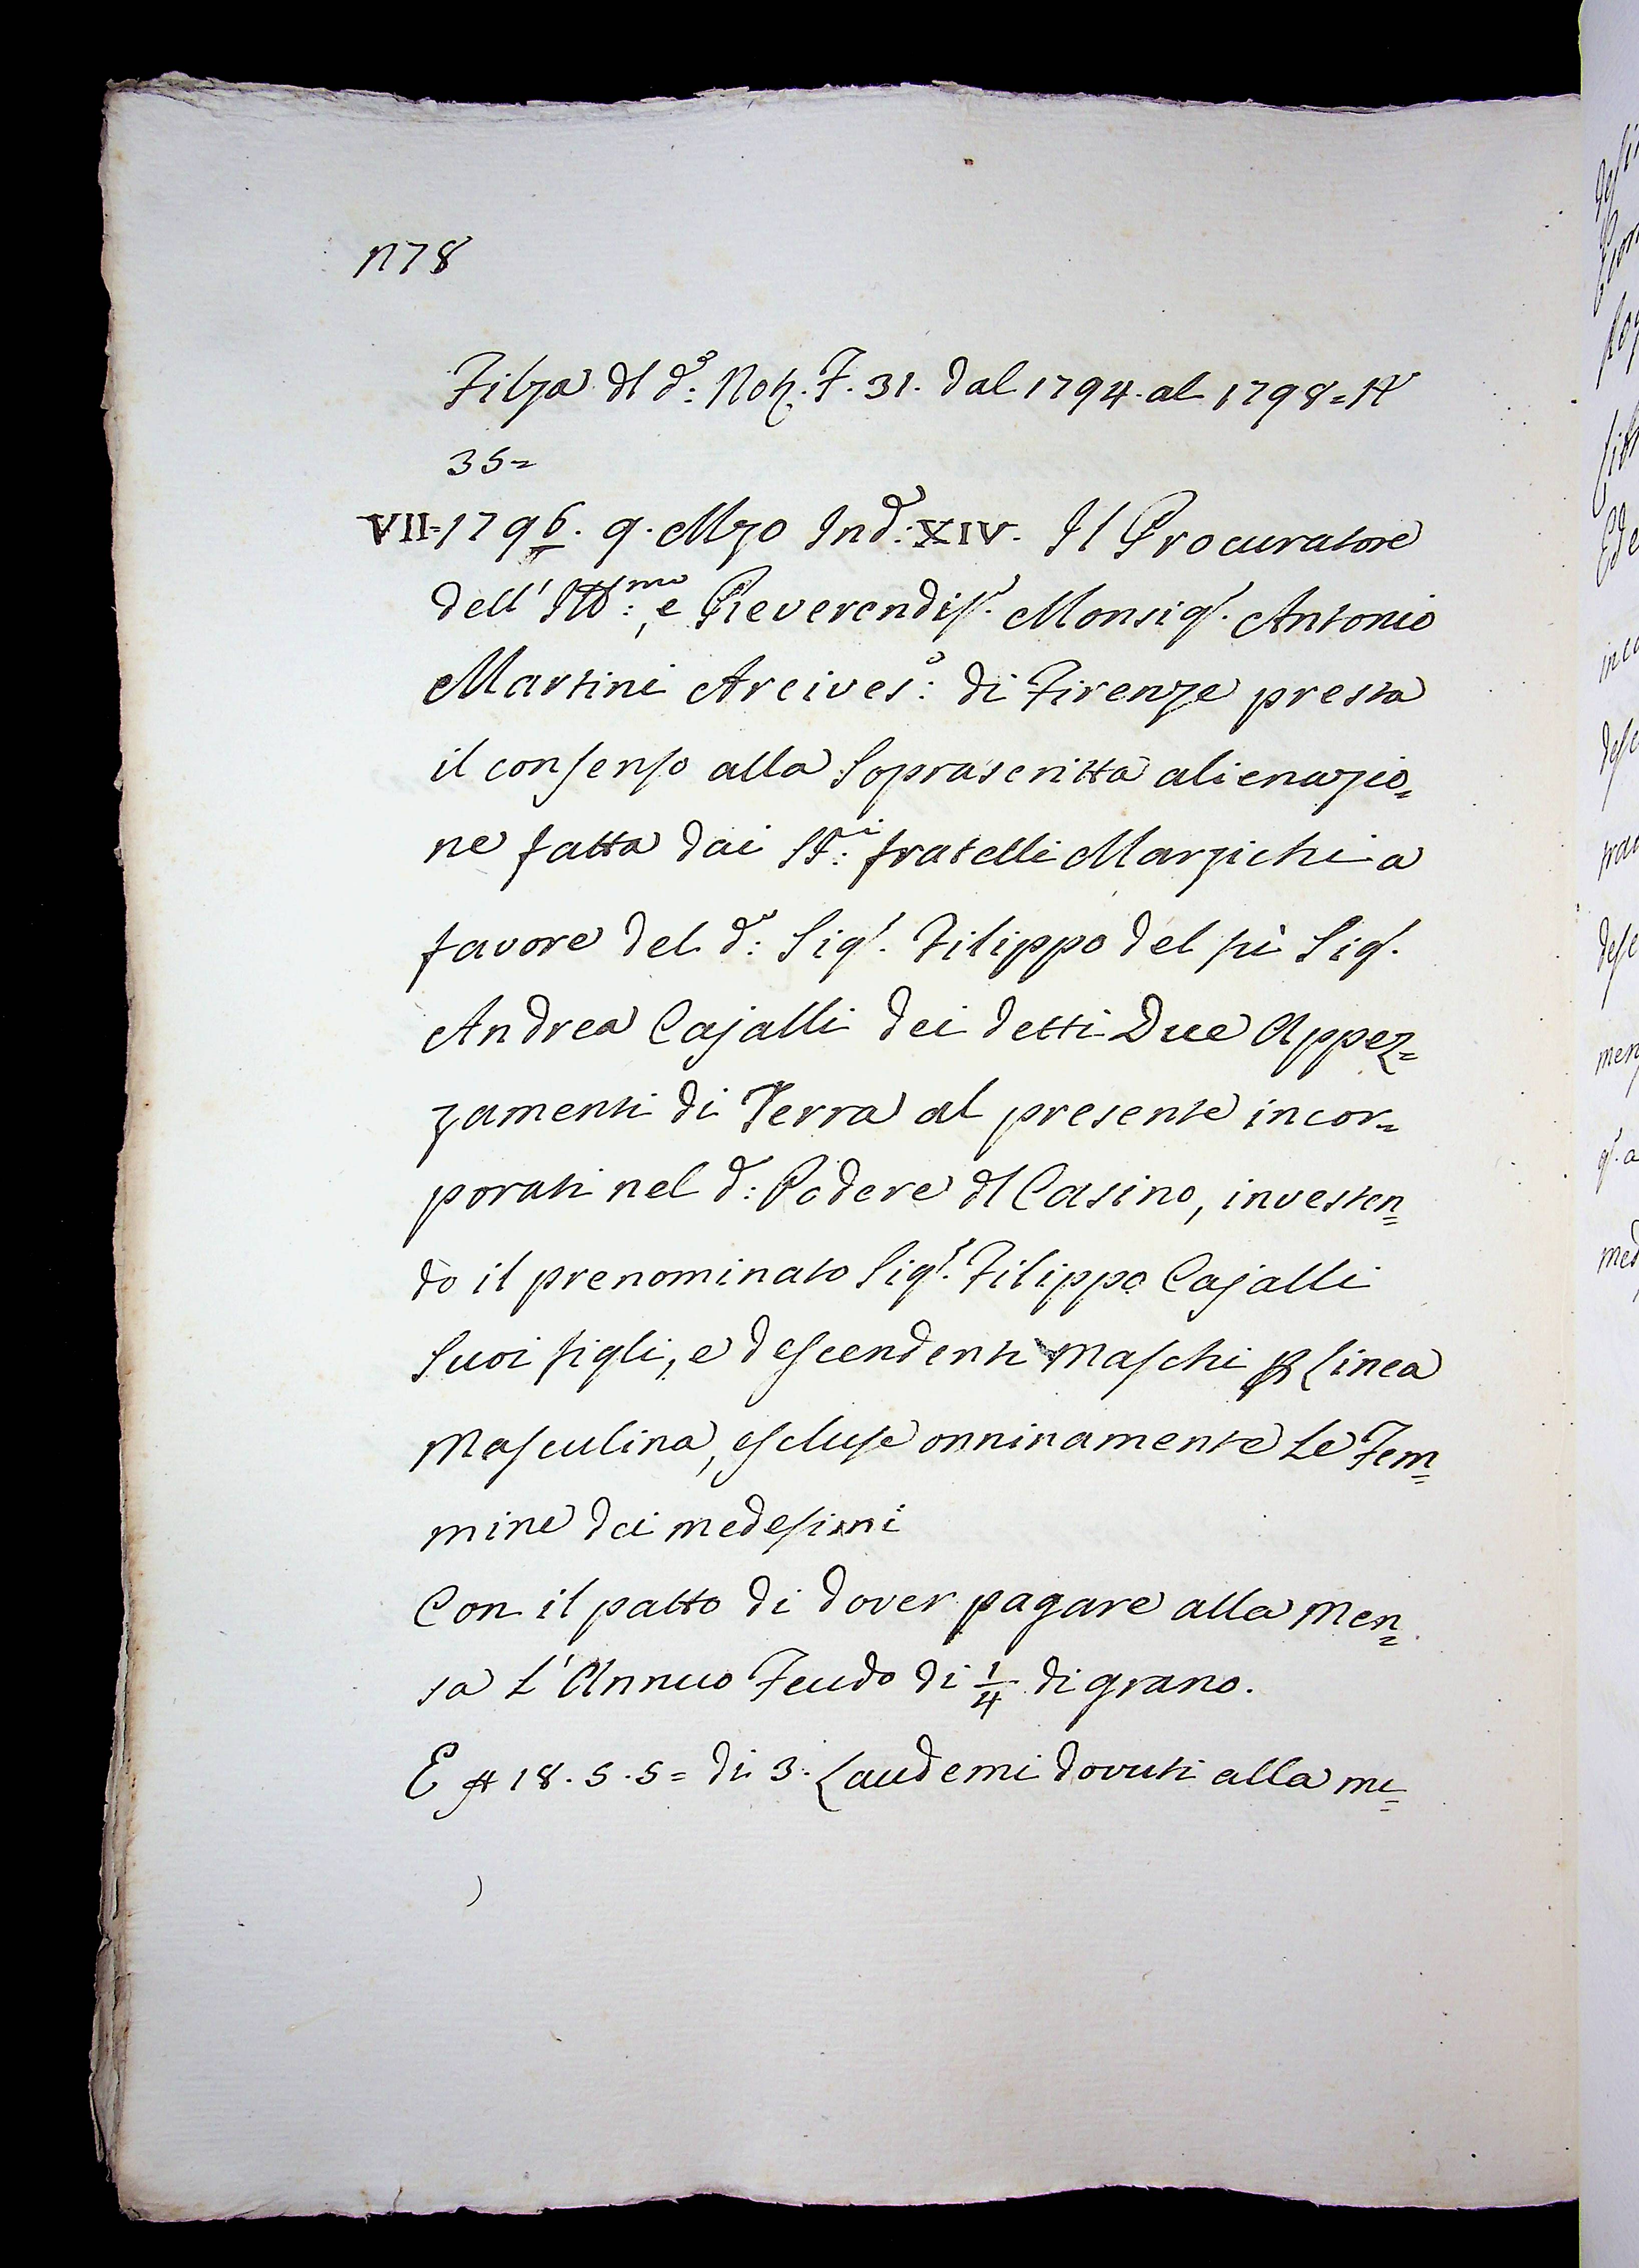 n 78
Filza dl d.o: Not. F. 31. dal 1794. al 1798 = N
35 =
VII. 1796. 9. Mzo Ind.: XIV. Il Procuratore
dell' Ill:mo, e Reverendiss.o Monsigr. Antonio
Martini Arcives:o di Firenze presta
il consenso alla Soprascritta alienazio=
ne fatta dai SS:ri fratelli Marzichi a
favore del d:o Sigr. Filippo del fù Sigr.
Andrea Cajalli dei detti Due Appez=
zamenti di Terra al presente incor=
porati nel d:o Podere dl Casino, investen=
do il prenominato Sigr. Filippo Cajalli
Suoi figli, e descendenti Maschi p Linea
Masculina, escluse onninamente Le Fem=
mine dei medesimi
Con il patto di dover pagare alla Men=
sa L' Annuo Feudo di 1/4 di grano.
E # 18. 5. 5 = di 3. Laudemi dovuti alla me=